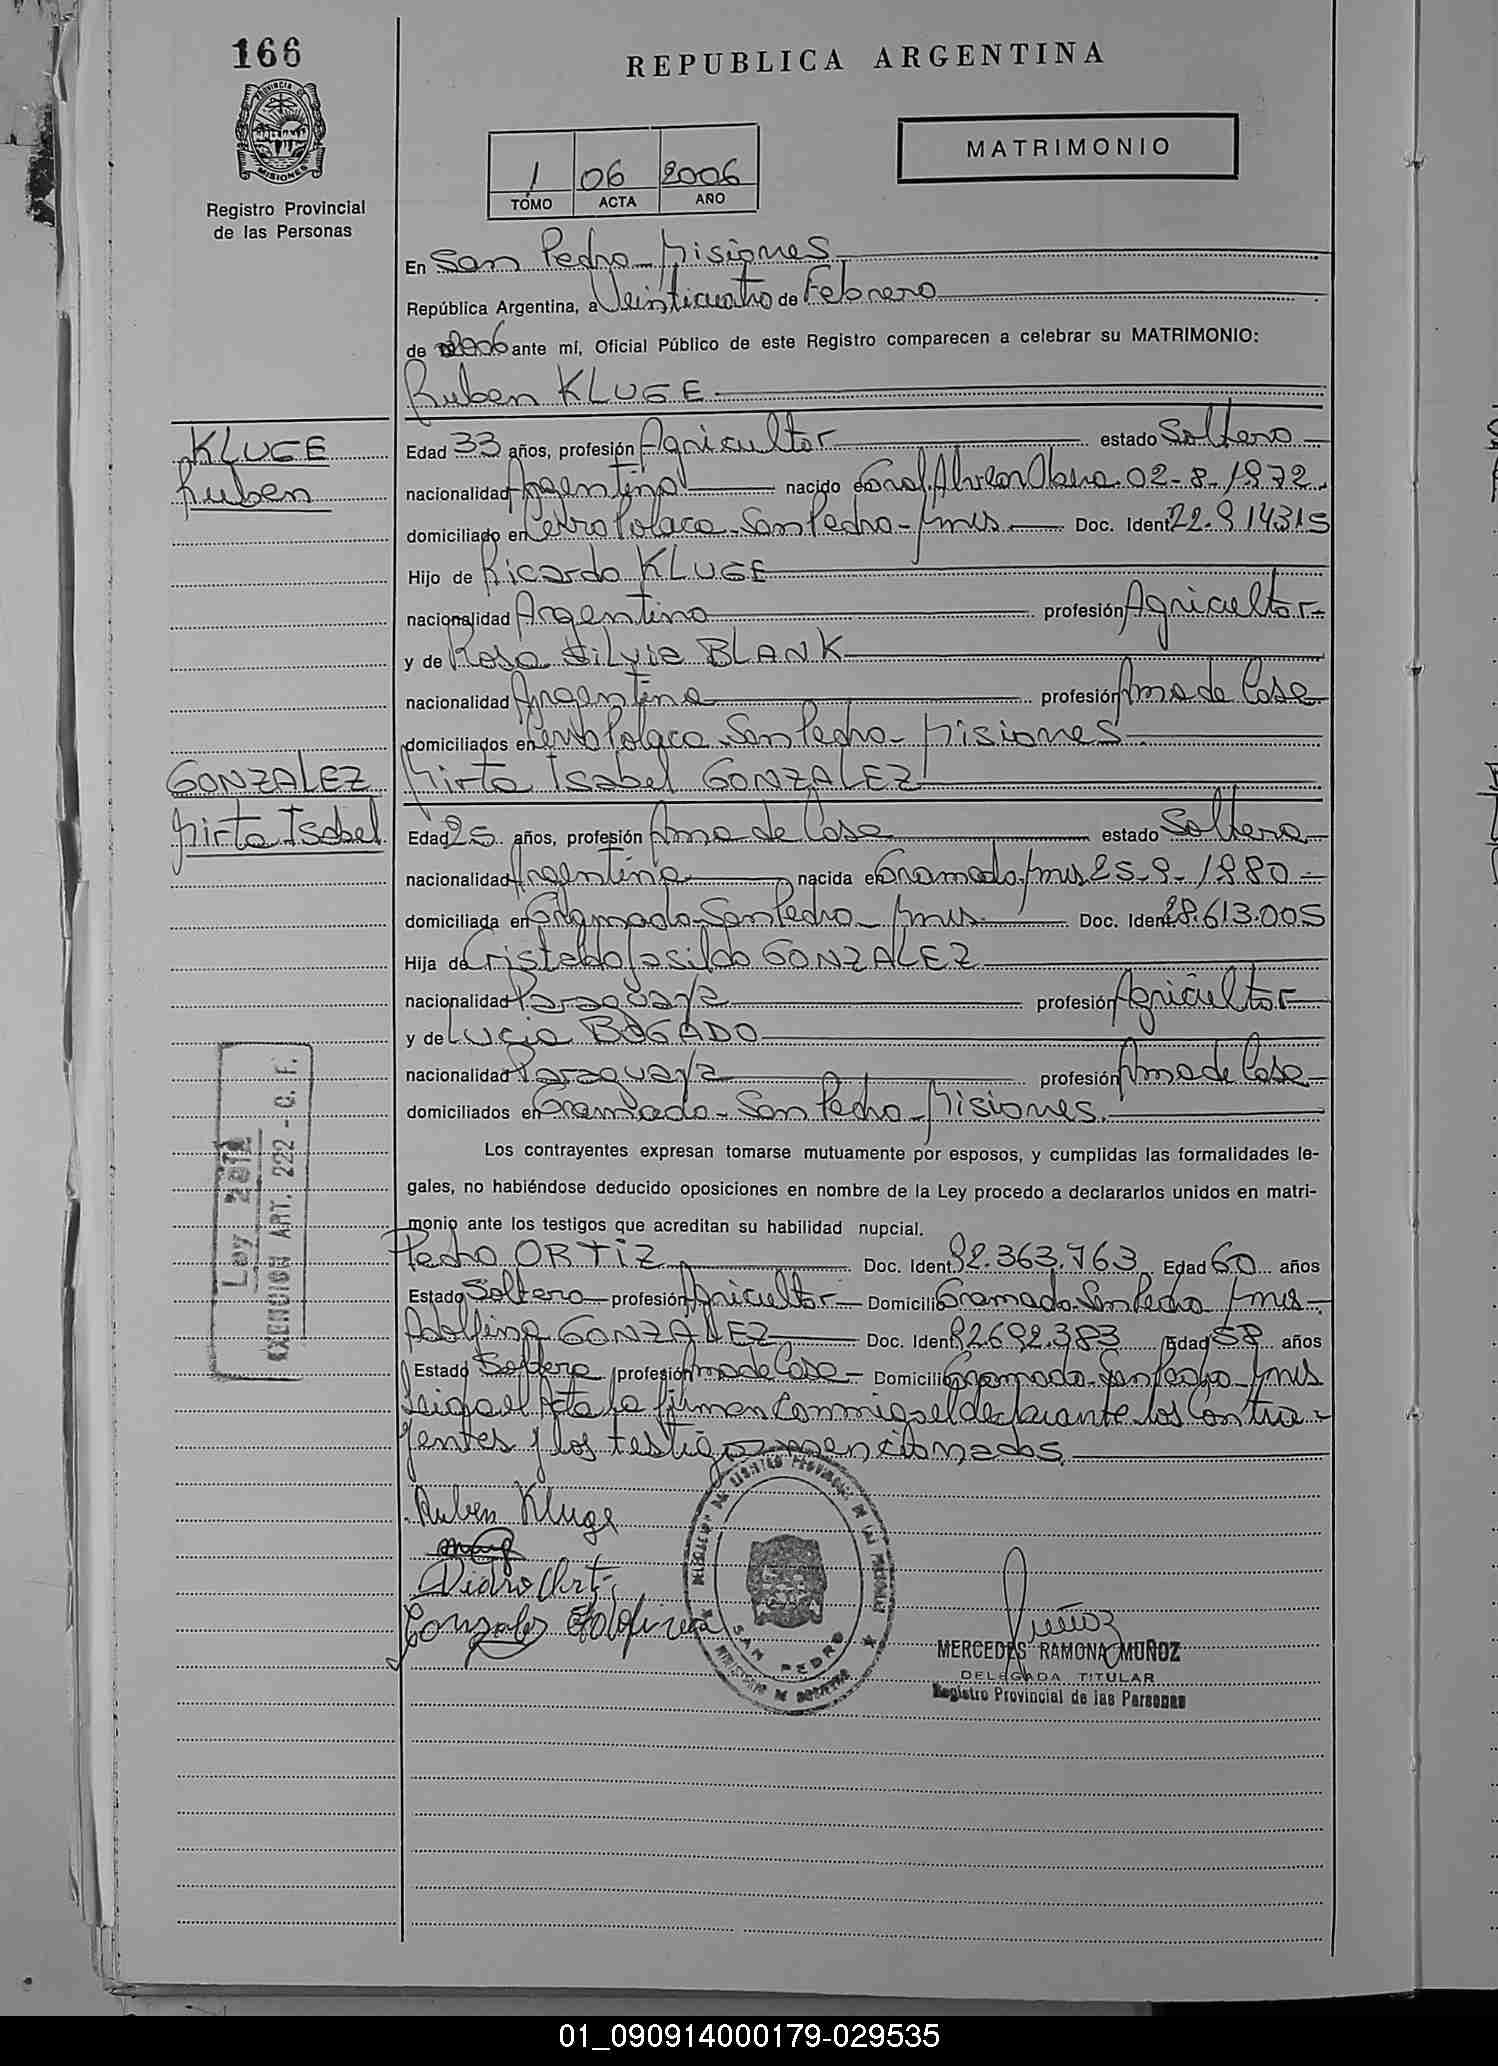 166
REPUBLICA ARGENTINA
PROVINCIA DE
MISIONES
MATRIMONIO
1 06 2006
TOMO ACTA AÑO
Registro Provincial
de las Personas
En San Pedro - Misiones
República Argentina, a Veinticuatro de Febrero
de 2006 ante mí, Oficial Público de este Registro comparecen a celebrar su MATRIMONIO:
Ruben KLUGE
KLUGE
Ruben
Edad 33 años, profesión Agricultor estado Soltero
nacionalidad Argentina nacido en Gral. Alvear Obera 02-8-1972
domiciliado en Cerro Polaco - San Pedro - Mnes Doc. Ident. 22.914315
Hijo de Ricardo KLUGE
nacionalidad Argentina profesión Agricultor
y de Rosa Silvia BLANK
nacionalidad Argentina profesión Ama de Casa
domiciliados en Cerro Polaco San Pedro - Misiones
GONZALEZ
Mirta Isabel
Mirta Isabel GONZALEZ
Edad 25 años, profesión Ama de Casa estado Soltera
nacionalidad Argentina nacida en Gramado Mnes 25-9-1980
domiciliada en Gramado - San Pedro - Mnes Doc. Ident. 28.613.005
Hija de Cristaldo GONZALEZ
nacionalidad Paraguaya profesión Agricultor
y de Lucia BOGADO
nacionalidad Paraguaya profesión Ama de Casa
domiciliados en Gramado - San Pedro - Misiones.
Los contrayentes expresan tomarse mutuamente por esposos, y cumplidas las formalidades le-
gales, no habiéndose deducido oposiciones en nombre de la Ley procedo a declararlos unidos en matri-
monio ante los testigos que acreditan su habilidad nupcial.
Ley
EXENCION ART. 222 - C. F.
Pedro ORTIZ Doc. Ident. 92.363.763 Edad 60 años
Estado Soltero profesión Agricultor Domicilio Gramado San Pedro Mnes
Adolfina GONZALEZ Doc. Ident. 92692.383 Edad 58 años
Estado Soltera profesión Ama de Casa Domicilio Gramado - San Pedro - Mnes
Leida el Acta la firman Conmigo el declarante los Contra-
yentes y los testigos mencionados.
Ruben Kluge
Gonzalez
DELEGACION DEL REGISTRO PROVINCIAL DE LAS PERSONAS
SAN PEDRO
MINISTERIO DE GOBIERNO
Muñoz
MERCEDES RAMONA MUÑOZ
DELEGADA TITULAR
Registro Provincial de las Personas
01_090914000179-029535